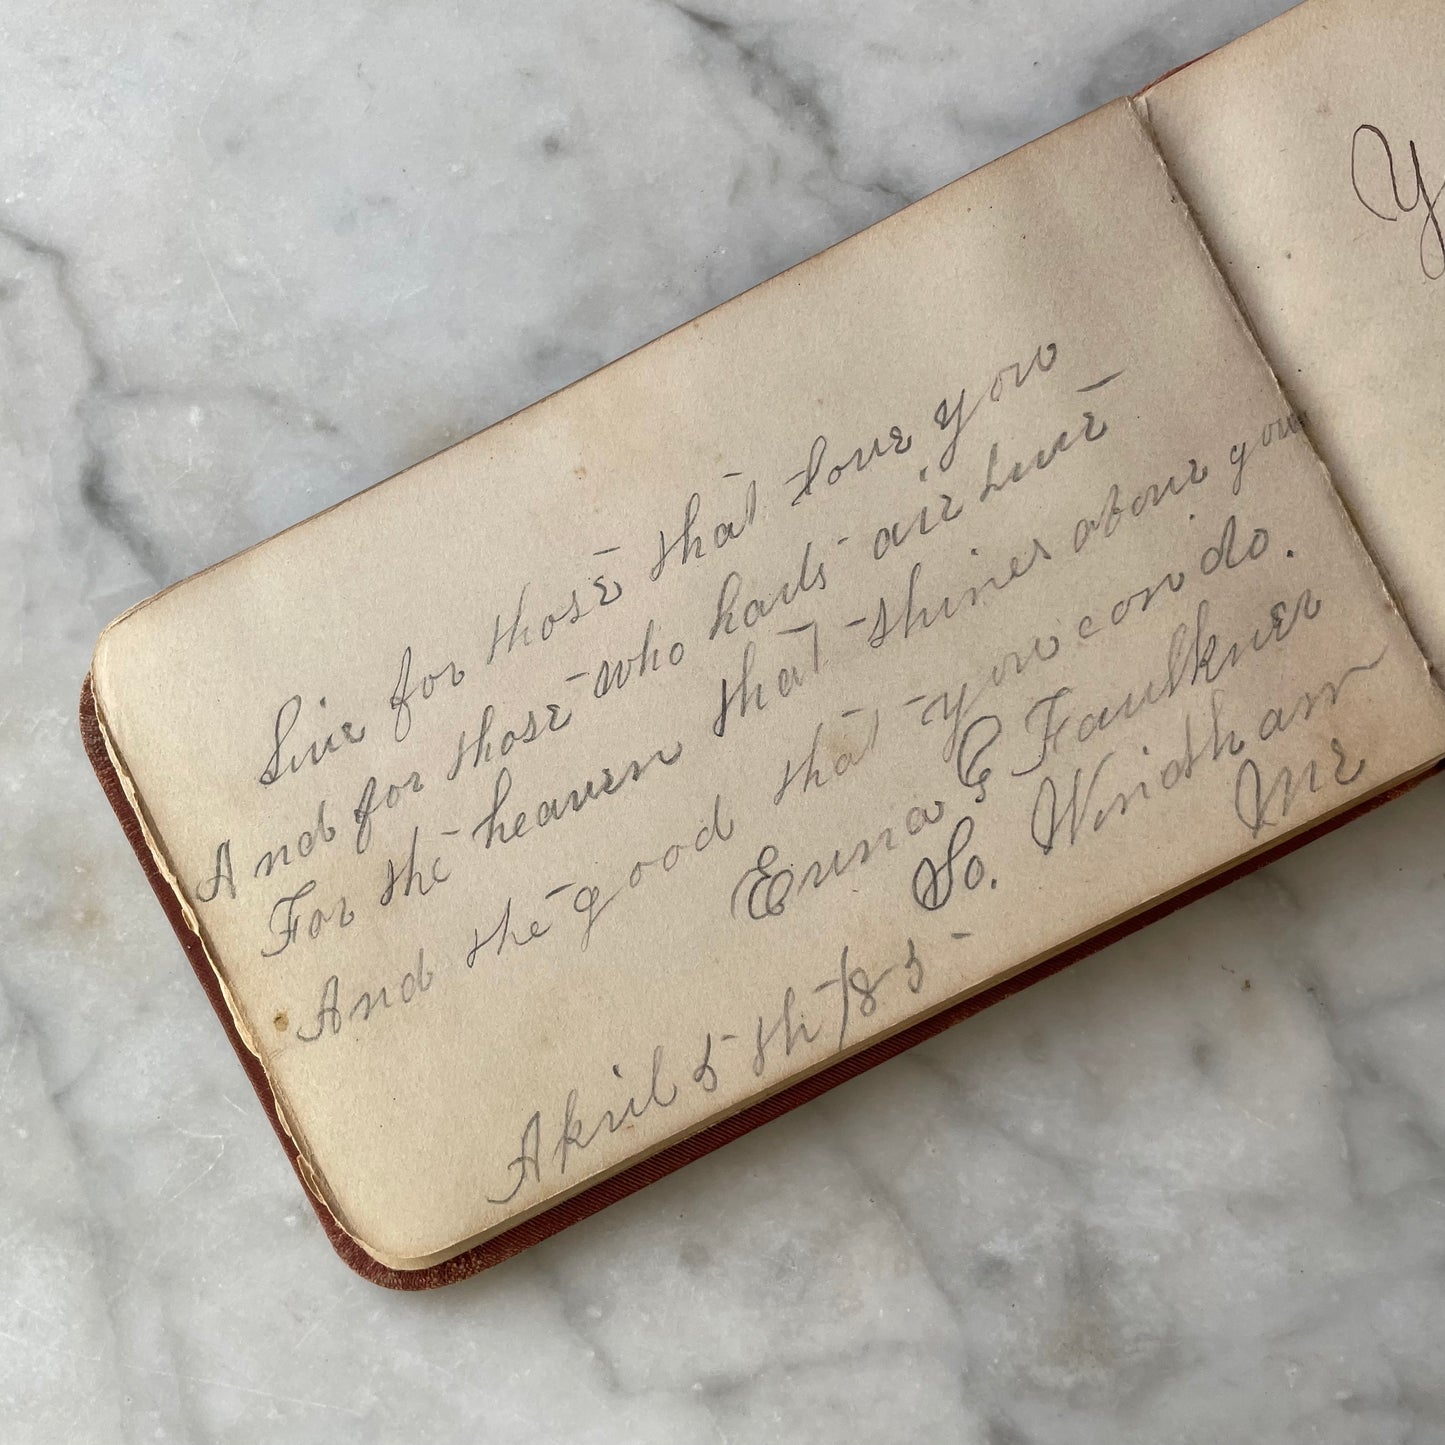 Live for those that love you
And for those who harts air hure
For the heaven that shines above you
And the good that you con do.
Enna E Faulkner
So. Windham
Me
April 5 th /85
Y